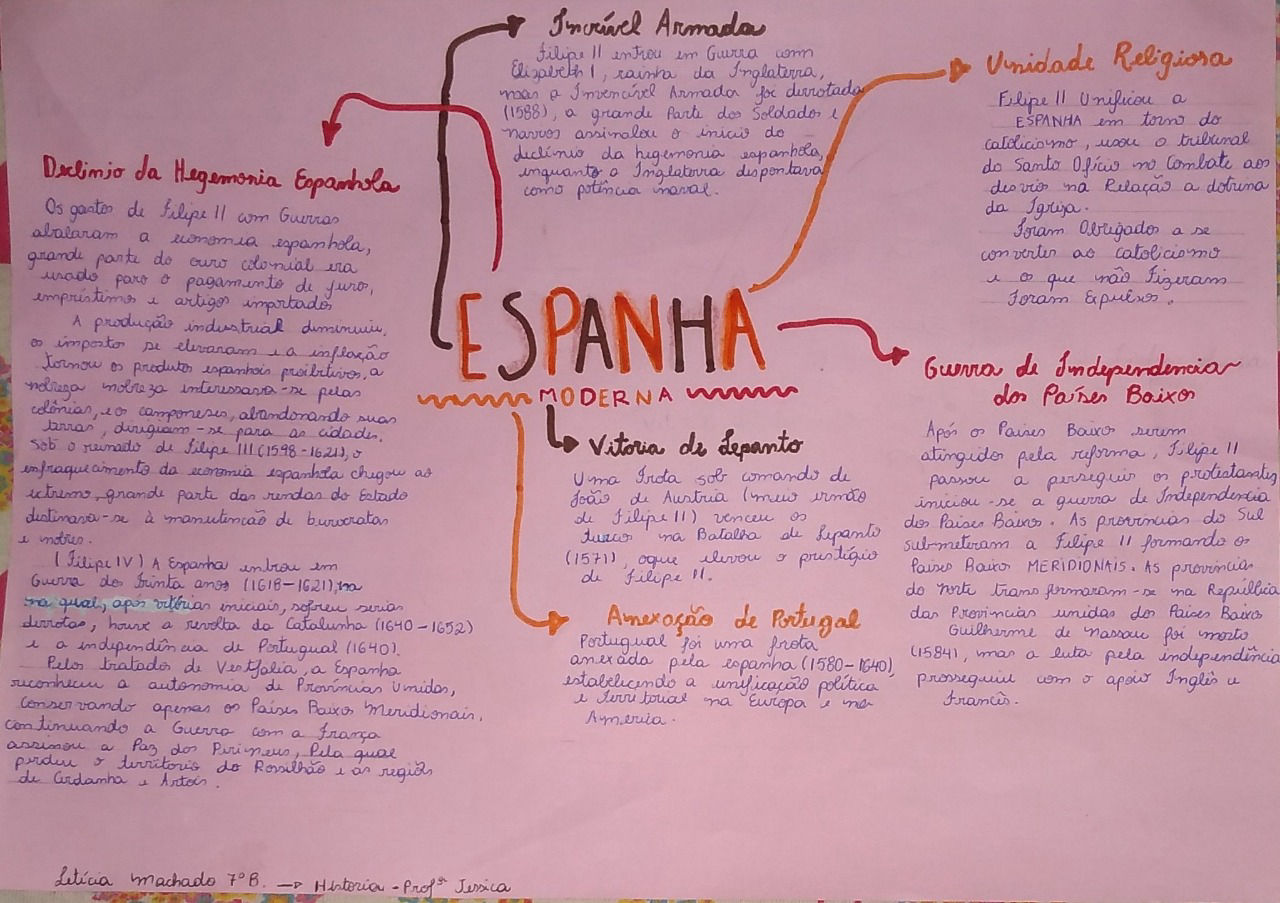 Incrível Armada
Filipe II entrou em Guerra com
Elizabeth I, rainha da Inglaterra,
mas a Invencível Armada foi derrotada
(1588), a grande Parte dos Soldados e
navios assinalou o inicio do
declínio da hegemonia espanhola,
enquanto a Inglaterra dispontava
como potência naval.
Unidade Religiosa
Filipe II Unificou a
ESPANHA em torno do
catolicismo, usou o tribunal
do Santo Ofício no Combate aos
desvios na Relação a dotrina
da Igreja.
Foram Obrigados a se
converter ao catolicismo
e os que não Fizeram
Foram Expulsos.
Declinio da Hegemonia Espanhola
Os gastos de Filipe II com Guerras
abalaram a economia espanhola,
grande parte do ouro colonial era
usado para o pagamento de juros,
empréstimos e artigos importados
A produção industrial diminuiu,
os impostos se elevaram e a inflação
tornou os produtos espanhois proibitivos, a
nobreza nobreza interessava-se pelas
colônias, e os camponeses, abandonando suas
terras, dirigiam-se para as cidades.
Sob o reinado de Filipe III (1598-1621), o
enfraquecimento da economia espanhola chegou ao
extremo, grande parte das rendas do Estado
destinava-se à manutenção de burocratas
e nobres.
(Filipe IV) A Espanha entrou em
Guerra dos Trinta anos (1618-1621), na
na qual, após vitórias iniciais, sofreu serias
derrotas, houve a revolta da Catalunha (1640-1652)
e a independência de Portugual (1640).
Pelos tratados de Vestfalia, a Espanha
reconheceu a autonomia de Províncias Unidas,
conservando apenas os Países Baixos Meridionais.
continuando a Guerra com a França
assinou a Paz dos Pirineus, Pela qual
perdeu o território do Rossilhão e as regiões
de Cerdanha e Artois.
ESPANHA
MODERNA
Guerra de Independencia
dos Países Baixos
Após os Paises Baixo serem
atingidos pela reforma, Filipe II
passou a perseguir os protestantes
iniciou-se a guerra de Independencia
dos Paises Baixos. As províncias do Sul
submeteram a Filipe II formando os
Países Baixo MERIDIONAIS. AS províncias
do norte transformaram-se na República
das Províncias unidas dos Países Baixo
Guilherme de Nassau foi morto
(1584), mas a luta pela independência
prosseguiu com o apoio Inglês e
Francês.
Vitoria de Lepanto
Uma Frota sob comando de
João de Austria (meio irmão
de Filipe II) venceu os
turcos na Batalha de Lepanto
(1571), oque elevou o prestígio
de Filipe II.
Anexação de Portugal
Portugual foi uma frota
anexada pela espanha (1580-1640),
estabelecendo a unificação política
e Territorial na Europa e na
America.
Letícia Machado 7°B. → Historia - Profª Jessica